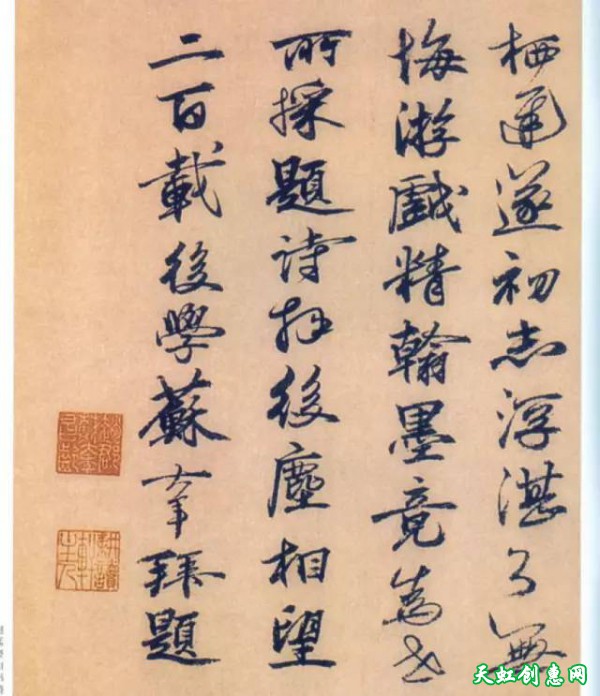 栖遁遂初志浮湛了無
悔游戲精翰墨竟為世
所採題詩拜後塵相望
二百載後學蘇大年拜題
天虹创惠网